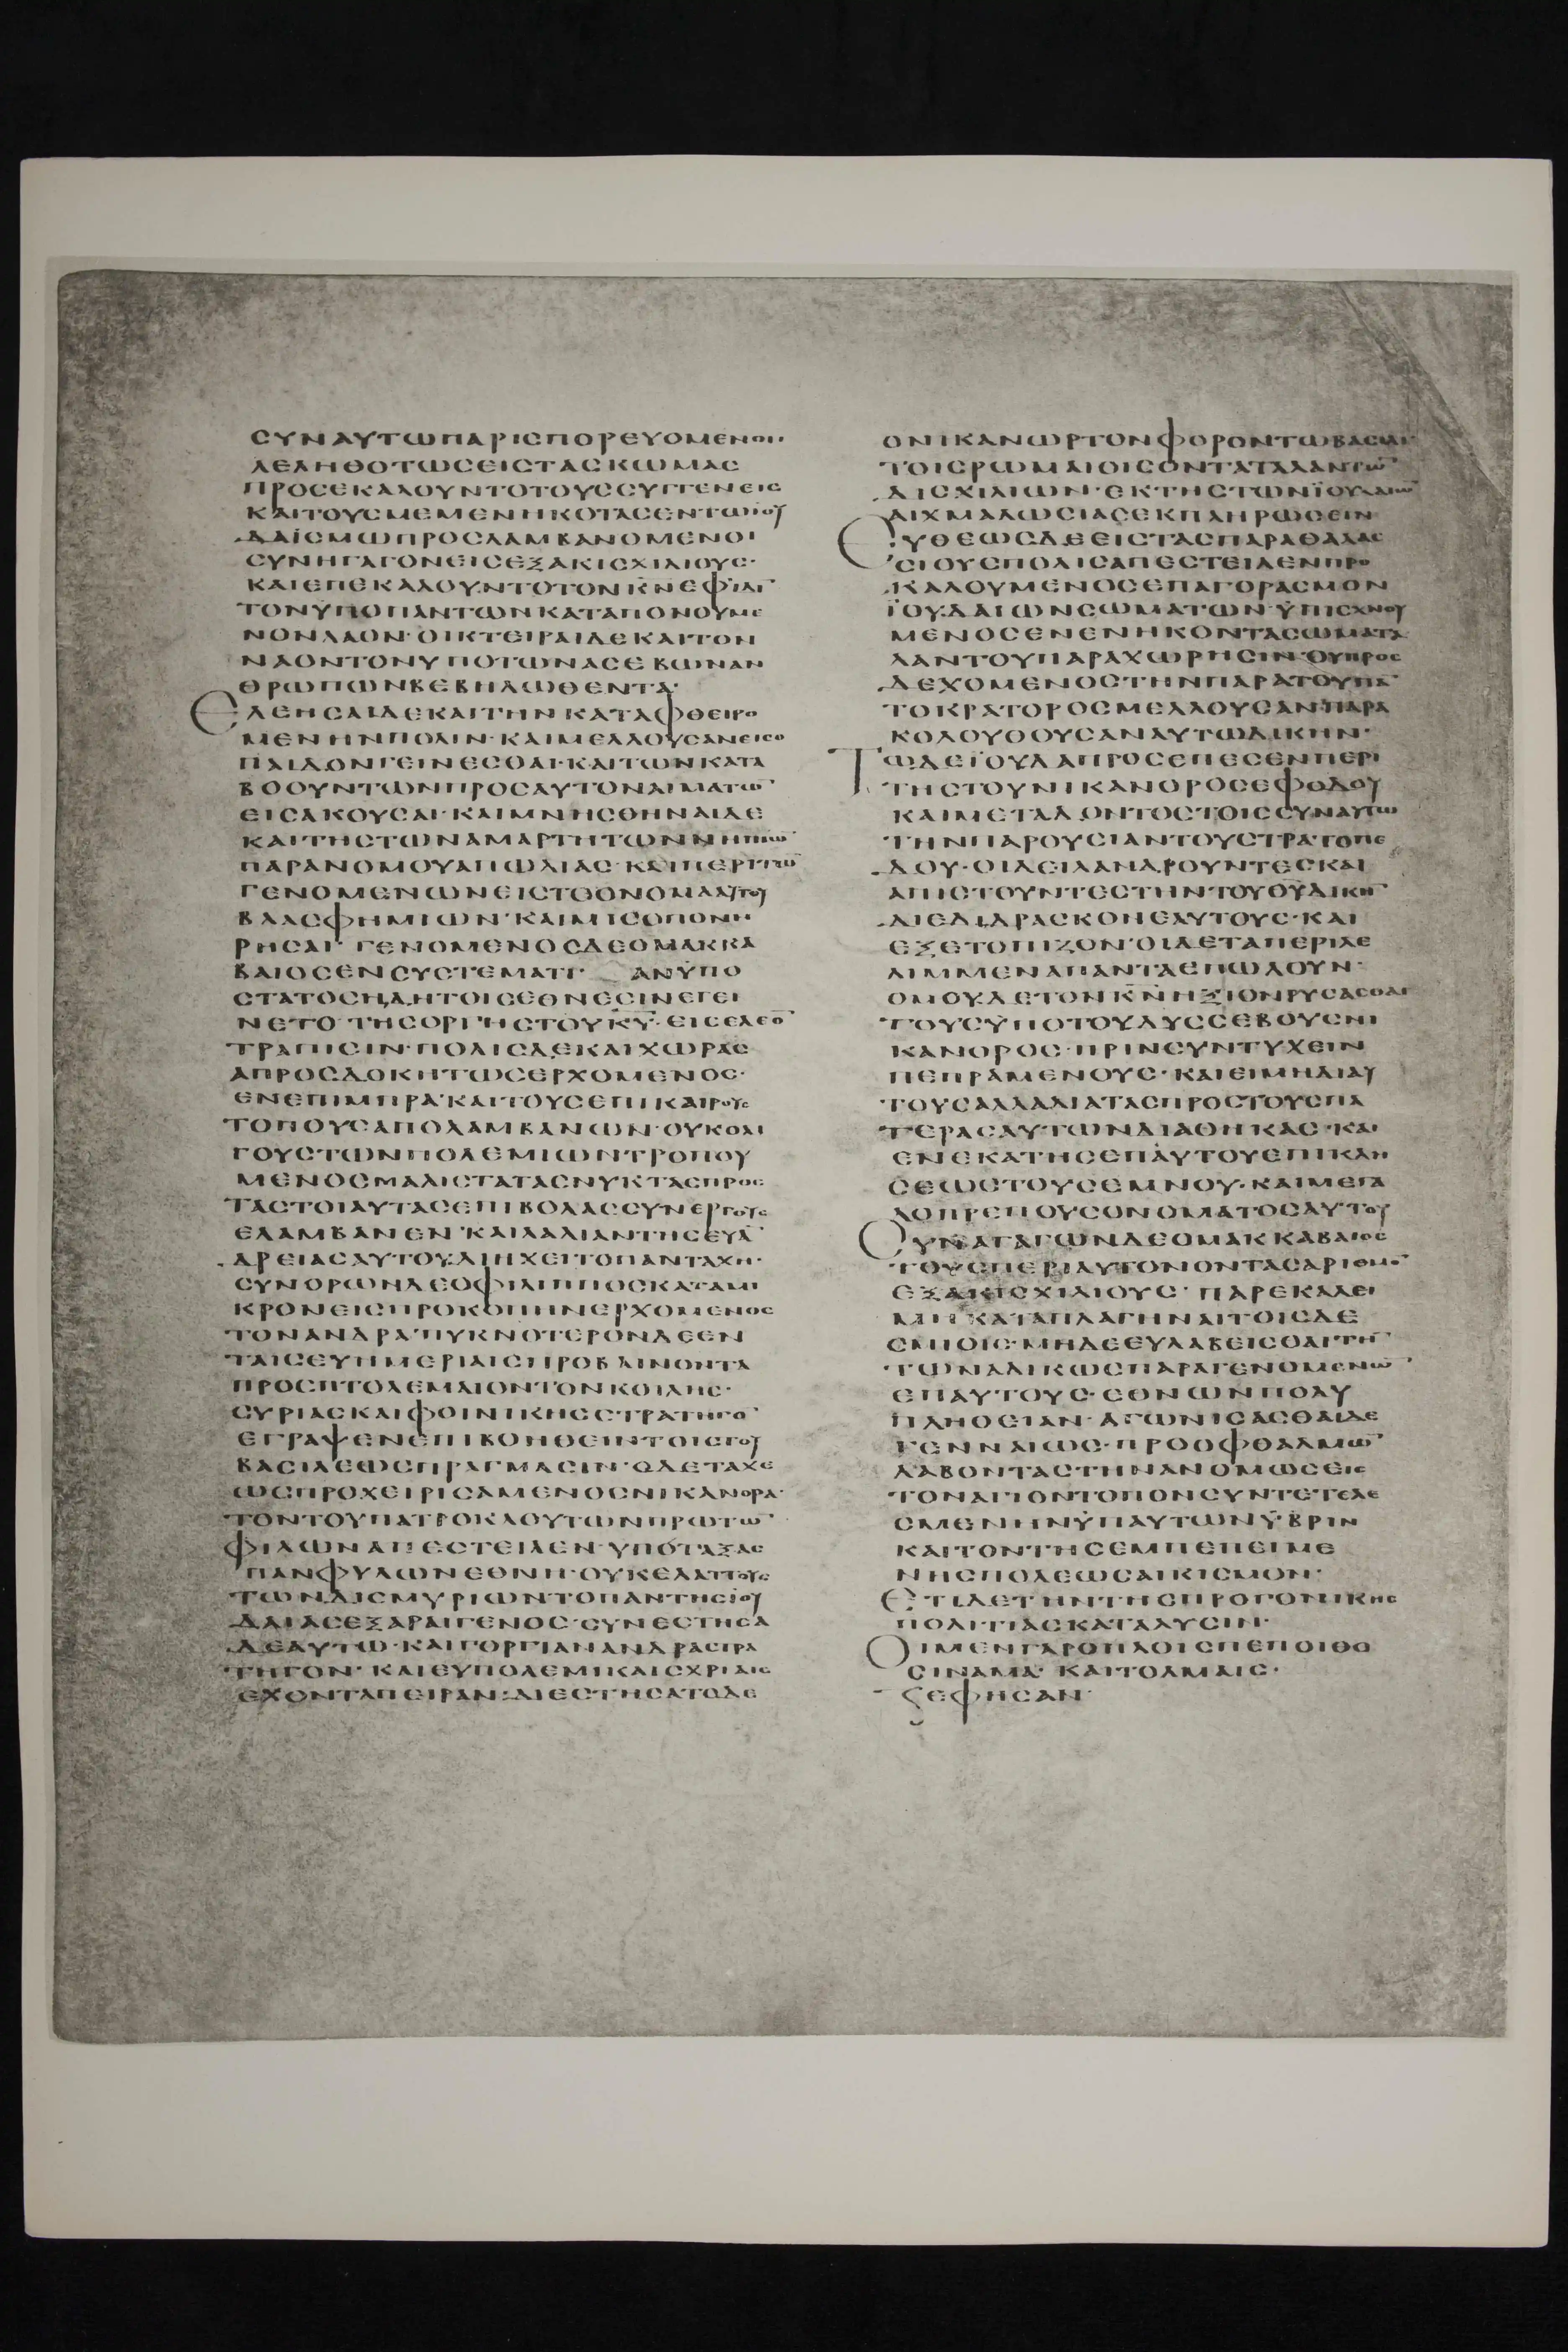 ϹΥΝΑΥΤΩΠΑΡΙϹΠΟΡΕΥΟΜΕΝΟΙ·
ΛΕΛΗΘΟΤΩϹΕΙϹΤΑϹΚΩΜΑϹ
ΠΡΟϹΕΚΑΛΟΥΝΤΟΤΟΥϹϹΥΓΓΕΝΕΙϹ
ΚΑΙΤΟΥϹΜΕΜΕΝΗΚΟΤΑϹΕΝΤΩΙΟΥ
ΔΑΪϹΜΩΠΡΟϹΛΑΜΒΑΝΟΜΕΝΟΙ
ϹΥΝΗΓΑΓΟΝΕΙϹΕΞΑΚΙϹΧΙΛΙΟΥϹ·
ΚΑΙΕΠΕΚΑΛΟΥΝΤΟΤΟΝΚ̅Ν̅ΕΦΪΔΙ̅
ΤΟΝΥΠΟΠΑΝΤΩΝΚΑΤΑΠΟΝΟΥΜΕ
ΝΟΝΛΑΟΝ·ΟΙΚΤΕΙΡΑΙΔΕΚΑΙΤΟΝ
ΝΑΟΝΤΟΝΥΠΟΤΩΝΑϹΕΒΩΝΑΝ
ΘΡΩΠΩΝΒΕΒΗΛΩΘΕΝΤΑ·
ΕΛΕΗϹΑΙΔΕΚΑΙΤΗΝΚΑΤΑΦΘΕΙΡΟ
ΜΕΝΗΝΠΟΛΙΝ·ΚΑΙΜΕΛΛΟΥϹΑΝΕΙϹΟ
ΠΑΙΔΟΝΓΕΙΝΕϹΘΑΙ·ΚΑΙΤΩΝΚΑΤΑ
ΒΟΟΥΝΤΩΝΠΡΟϹΑΥΤΟΝΑΙΜΑΤΩ̅
ΕΙϹΑΚΟΥϹΑΙ·ΚΑΙΜΝΗϹΘΗΝΑΙΔΕ
ΚΑΙΤΗϹΤΩΝΑΜΑΡΤΗΤΩΝΝΗΠΙΩ̅
ΠΑΡΑΝΟΜΟΥΑΠΩΛΙΑϹ·ΚΑΙΠΕΡΙΤΩ̅
ΓΕΝΟΜΕΝΩΝΕΙϹΤΟΟΝΟΜΑΑΥΤΟΥ
ΒΛΑϹΦΗΜΙΩΝ·ΚΑΙΜΙϹΟΠΟΝΗ
ΡΗϹΑΙ· ΓΕΝΟΜΕΝΟϹΔΕΟΜΑΚΚΑ
ΒΑΙΟϹΕΝϹΥϹΤΕΜΑΤΙ· ΑΝΫΠΟ
ϹΤΑΤΟϹΗΔΗΤΟΙϹΕΘΝΕϹΙΝΕΓΕΙ
ΝΕΤΟ·ΤΗϹΟΡΓΗϹΤΟΥΚ̅Υ̅·ΕΙϹΕΛΕΟ̅
ΤΡΑΠΙϹΙΝ·ΠΟΛΙϹΔΕΚΑΙΧΩΡΑϹ
ΑΠΡΟϹΔΟΚΗΤΩϹΕΡΧΟΜΕΝΟϹ·
ΕΝΕΠΙΜΠΡΑ·ΚΑΙΤΟΥϹΕΠΙΚΑΙΡΟΥϹ
ΤΟΠΟΥϹΑΠΟΛΑΜΒΑΝΩΝ·ΟΥΚΟΛΙ
ΓΟΥϹΤΩΝΠΟΛΕΜΙΩΝΤΡΟΠΟΥ
ΜΕΝΟϹΜΑΛΙϹΤΑΤΑϹΝΥΚΤΑϹΠΡΟϹ
ΤΑϹΤΟΙΑΥΤΑϹΕΠΙΒΟΛΑϹϹΥΝΕΡΓΟΥϹ
ΕΛΑΜΒΑΝΕΝ·ΚΑΙΛΑΛΙΑΝΤΗϹΕΥΑ̅
ΔΡΕΙΑϹΑΥΤΟΥΔΙΗΧΕΙΤΟΠΑΝΤΑΧΗ·
ϹΥΝΟΡΩΝΔΕΟΦΙΛΙΠΠΟϹΚΑΤΑΜΙ
ΚΡΟΝΕΙϹΠΡΟΚΟΠΗΝΕΡΧΟΜΕΝΟϹ
ΤΟΝΑΝΔΡΑ·ΠΥΚΝΟΤΕΡΟΝΔΕΕΝ
ΤΑΙϹΕΥΗΜΕΡΙΑΙϹΠΡΟΒΑΙΝΟΝΤΑ
ΠΡΟϹΠΤΟΛΕΜΑΙΟΝΤΟΝΚΟΙΛΗϹ·
ϹΥΡΙΑϹΚΑΙΦΟΙΝΙΚΗϹϹΤΡΑΤΗΓΟ̅
ΕΓΡΑΨΕΝΕΠΙΒΟΗΘΕΙΝΤΟΙϹΤΟΥ
ΒΑϹΙΛΕΩϹΠΡΑΓΜΑϹΙΝ·ΟΔΕΤΑΧΕ
ΩϹΠΡΟΧΕΙΡΙϹΑΜΕΝΟϹΝΙΚΑΝΟΡΑ·
ΤΟΝΤΟΥΠΑΤΡΟΚΛΟΥΤΩΝΠΡΩΤΩ̅
ΦΙΛΩΝΑΠΕϹΤΕΙΛΕΝ·ΥΠΟΤΑΞΑϹ
ΠΑΝΦΥΛΩΝΕΘΝΗ·ΟΥΚΕΛΑΤΤΟΥϹ
ΤΩΝΔΙϹΜΥΡΙΩΝΤΟΠΑΝΤΗϹΪΟΥ
ΔΑΙΑϹΕΞΑΡΑΙΓΕΝΟϹ·ϹΥΝΕϹΤΗϹΑ
ΔΕΑΥΤΩ·ΚΑΙΓΟΡΓΙΑΝΑΝΔΡΑϹΤΡΑ
ΤΗΓΟΝ·ΚΑΙΕΥΠΟΛΕΜΙΚΑΙϹΧΡΙΑΙϹ
ΕΧΟΝΤΑΠΕΙΡΑΝ·ΔΙΕϹΤΗϹΑΤΟΔΕ
ΟΝΙΚΑΝΩΡΤΟΝΦΟΡΟΝΤΩΒΑϹΙΛΙ·
ΤΟΙϹΡΩΜΑΙΟΙϹΟΝΤΑΤΑΛΑΝΤΩ̅
ΔΙϹΧΙΛΙΩΝ·ΕΚΤΗϹΤΩΝΪΟΥΔΑΙΩ̅
ΑΙΧΜΑΛΩϹΙΑϹΕΚΠΛΗΡΩϹΕΙΝ
ΕΥΘΕΩϹΔΕΕΙϹΤΑϹΠΑΡΑΘΑΛΑϹ
ϹΙΟΥϹΠΟΛΙϹΑΠΕϹΤΕΙΛΕΝΠΡΟ
ΚΑΛΟΥΜΕΝΟϹΕΠΑΓΟΡΑϹΜΟΝ
ΪΟΥΔΑΙΩΝϹΩΜΑΤΩΝ·ΫΠΙϹΧΝΟΥ
ΜΕΝΟϹΕΝΕΝΗΚΟΝΤΑϹΩΜΑΤΑ
ΛΑΝΤΟΥΠΑΡΑΧΩΡΗϹΙΝ·ΟΥΠΡΟϹ
ΔΕΧΟΜΕΝΟϹΤΗΝΠΑΡΑΤΟΥΠΑ̅
ΤΟΚΡΑΤΟΡΟϹΜΕΛΛΟΥϹΑΝΠΑΡΑ
ΚΟΛΟΥΘΟΥϹΑΝΑΥΤΩΔΙΚΗΝ·
ΤΩΔΕΪΟΥΔΑΠΡΟϹΕΠΕϹΕΝΠΕΡΙ
ΤΗϹΤΟΥΝΙΚΑΝΟΡΟϹΕΦΟΔΟΥ
ΚΑΙΜΕΤΑΔΟΝΤΟϹΤΟΙϹϹΥΝΑΥΤΩ
ΤΗΝΠΑΡΟΥϹΙΑΝΤΟΥϹΤΡΑΤΟΠΕ
ΔΟΥ·ΟΙΔΕΙΛΑΝΔΡΟΥΝΤΕϹΚΑΙ
ΑΠΙϹΤΟΥΝΤΕϹΤΗΝΤΟΥΘ̅Υ̅ΔΙΚΗ̅
ΔΙΕΔΙΔΡΑϹΚΟΝΕΑΥΤΟΥϹ·ΚΑΙ
ΕΞΕΤΟΠΙΖΟΝ·ΟΙΔΕΤΑΠΕΡΙΛΕ
ΛΙΜΜΕΝΑΠΑΝΤΑΕΠΩΛΟΥΝ·
ΟΜΟΥΔΕΤΟΝΚ̅Ν̅ΗΞΙΟΝΡΥϹΑϹΘΑΙ
ΤΟΥϹΫΠΟΤΟΥΔΥϹϹΕΒΟΥϹΝΙ
ΚΑΝΟΡΟϹ·ΠΡΙΝϹΥΝΤΥΧΕΙΝ
ΠΕΠΡΑΜΕΝΟΥϹ·ΚΑΙΕΙΜΗΔΙΑΥ
ΤΟΥϹΑΛΛΑΔΙΑΤΑϹΠΡΟϹΤΟΥϹΠΑ
ΤΕΡΑϹΑΥΤΩΝΔΙΑΘΗΚΑϹ·ΚΑΙ
ΕΝΕΚΑΤΗϹΕΠΑΥΤΟΥϹΕΠΙΚΛΗ
ϹΕΩϹΤΟΥϹΕΜΝΟΥ·ΚΑΙΜΕΓΑ
ΛΟΠΡΕΠΟΥϹΟΝΟΜΑΤΟϹΑΥΤΟΥ
ϹΥΝΑΓΑΓΩΝΔΕΟΜΑΚΚΑΒΑΙΟϹ
ΤΟΥϹΠΕΡΙΑΥΤΟΝΟΝΤΑϹΑΡΙΘΜΟ̅
ΕΞΑΚΙϹΧΙΛΙΟΥϹ· ΠΑΡΕΚΑΛΕΙ
ΜΗΚΑΤΑΠΛΑΓΗΝΑΙΤΟΙϹΔΕ
ϹΜΙΟΙϹ·ΜΗΔΕΕΥΛΑΒΕΙϹΘΑΙΤΗ̅
ΤΩΝΑΔΙΚΩϹΠΑΡΑΓΕΝΟΜΕΝΩ̅
ΕΠΑΥΤΟΥϹ·ΕΘΝΩΝΠΟΛΥ
ΠΛΗΘΕΙΑΝ·ΑΓΩΝΙϹΑϹΘΑΙΔΕ
ΓΕΝΝΑΙΩϹ·ΠΡΟΟΦΘΑΛΜΩ̅
ΛΑΒΟΝΤΑϹΤΗΝΑΝΟΜΩϹΕΙϹ
ΤΟΝΑΓΙΟΝΤΟΠΟΝϹΥΝΤΕΤΕΛΕ
ϹΜΕΝΗΝΫΠΑΥΤΩΝΫΒΡΙΝ
ΚΑΙΤΟΝΤΗϹΕΜΠΕΠΕΙΜΕ
ΝΗϹΠΟΛΕΩϹΑΙΚΙϹΜΟΝ·
ΕΤΙΔΕΤΗΝΤΗϹΠΡΟΓΟΝΙΚΗϹ
ΠΟΛΙΤΙΑϹΚΑΤΑΛΥϹΙΝ·
ΟΙΜΕΝΓΑΡΟΠΛΟΙϹΠΕΠΟΙΘΟ
ϹΙΝΑΜΑ· ΚΑΙΤΟΛΜΑΙϹ·
ϹΕΦΗϹΑΝ·